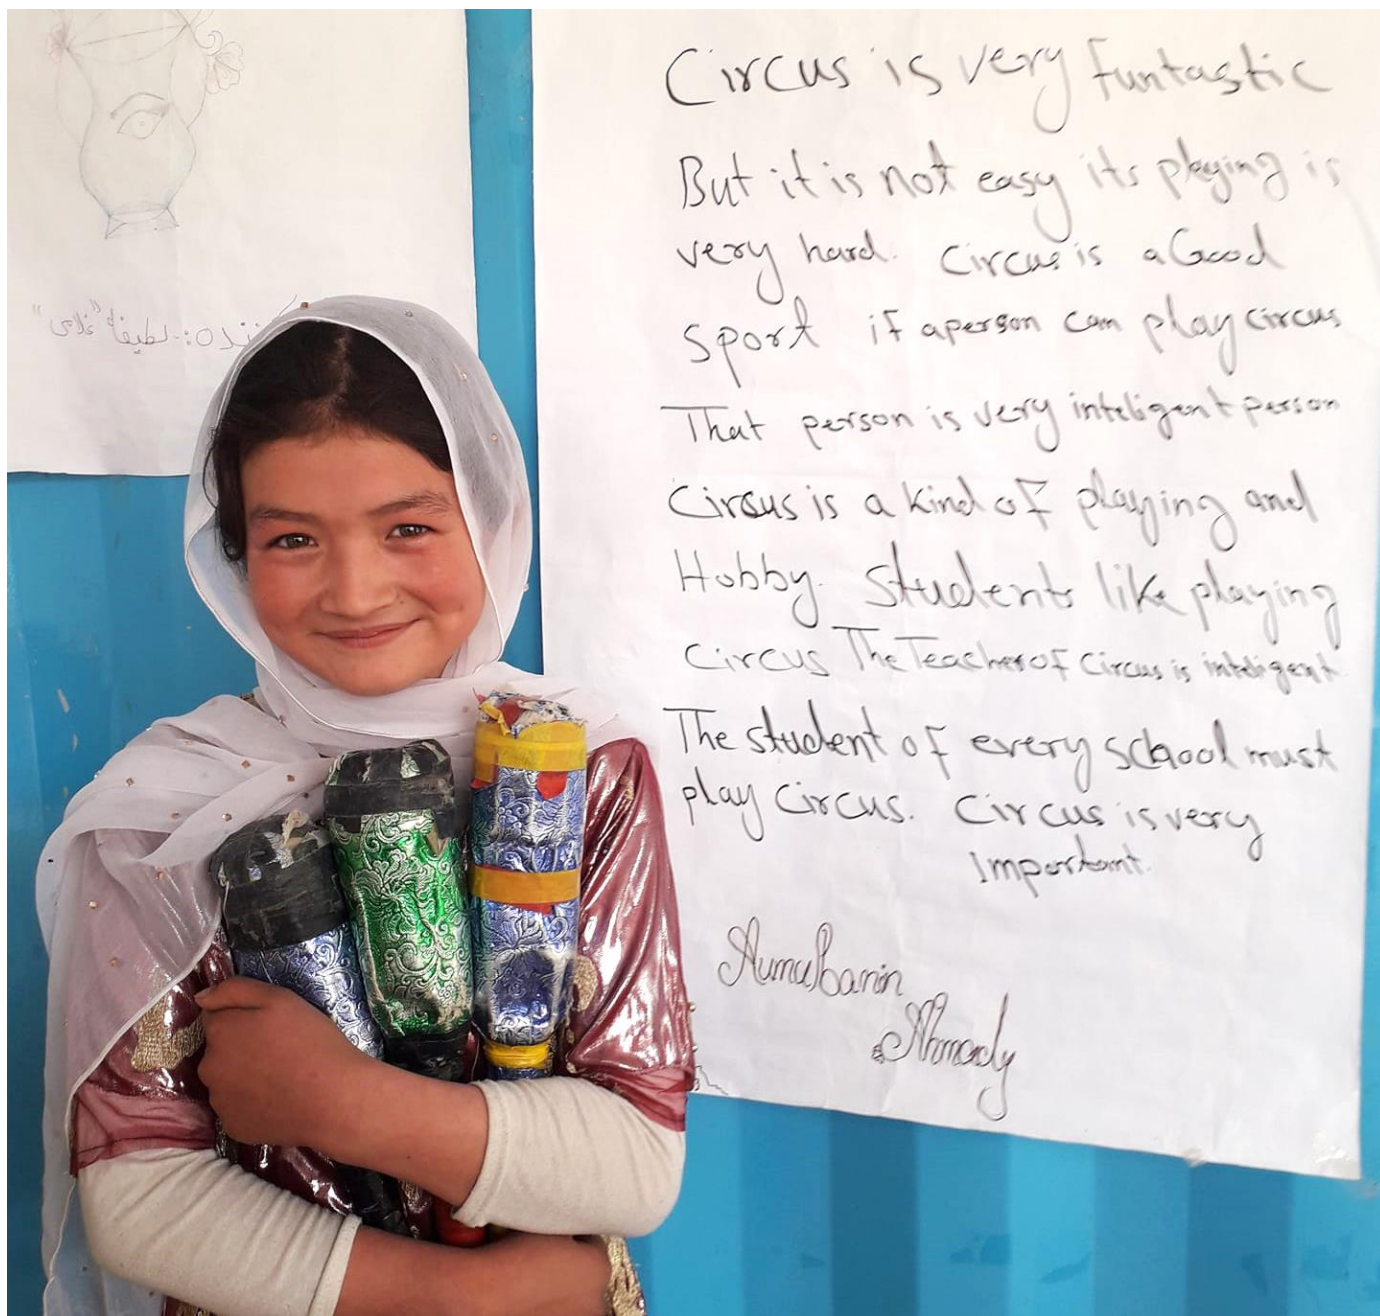 Circus is very Funtastic
But it is not easy its playing is
very hard. Circus is a Good
sport if a person can play circus
That person is very inteligent person
Circus is a kind of playing and
Hobby. Students like playing
Circus The Teacher of Circus is inteligent.
The student of every school must
play Circus. Circus is very
Important.
Aumulbanin
Ahmady
لطیفه "غلامی"